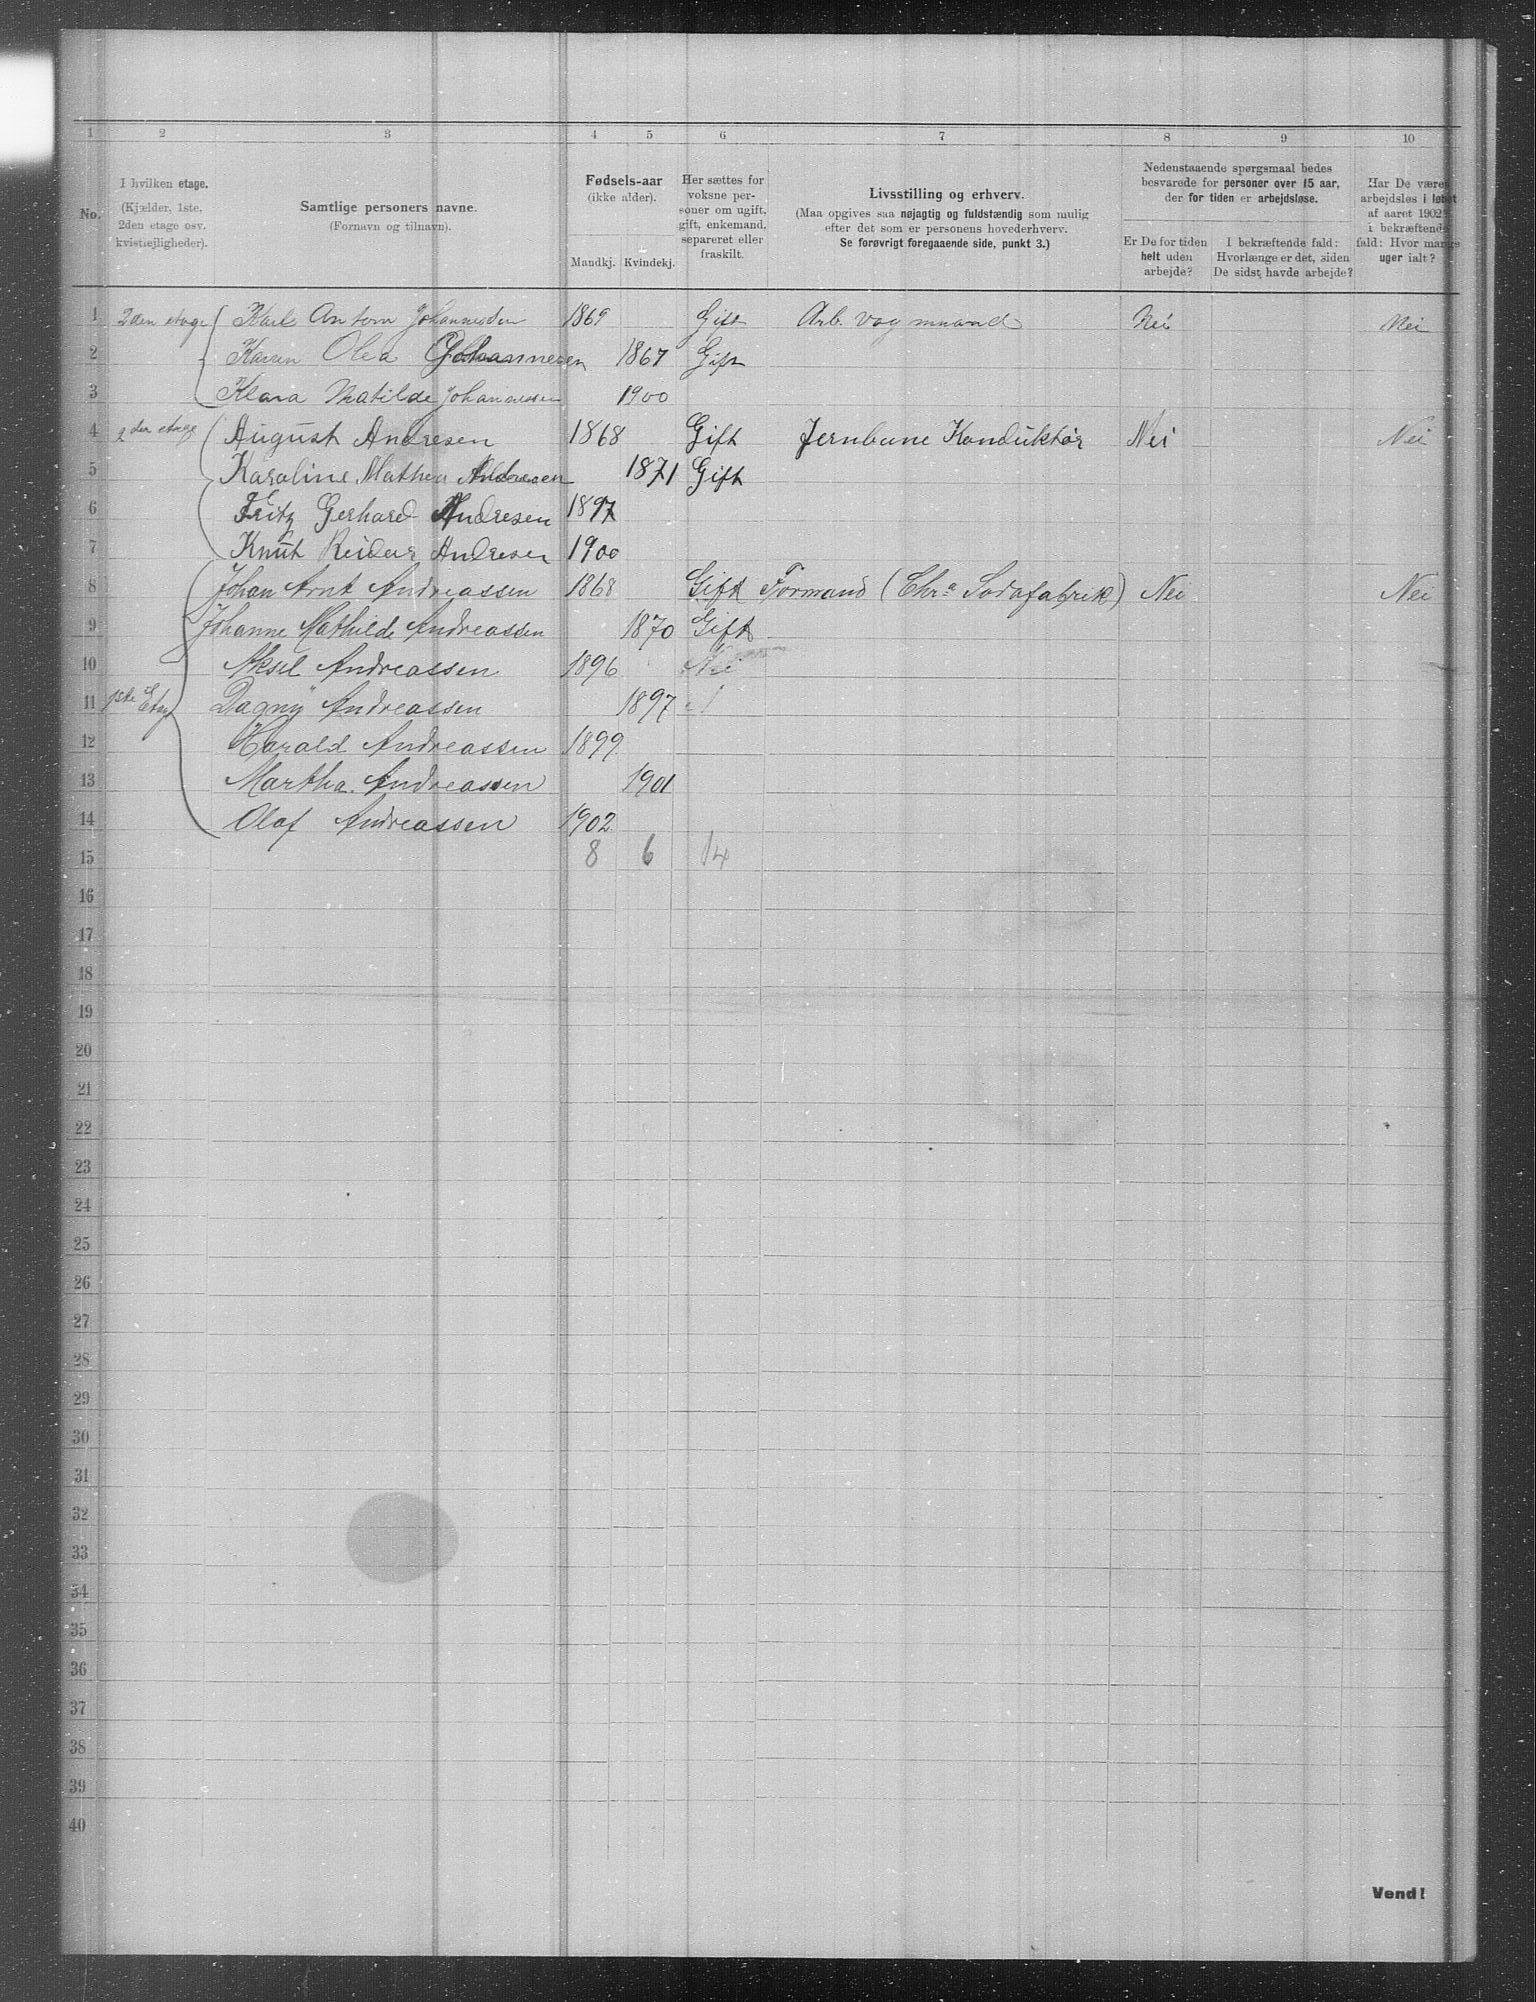 1 2 3 4 5 6 7 8 9 10
No.
I hvilken etage.
(Kjælder, 1ste, 2den etage osv. kvistlejligheder).
Samtlige personers navne.
(Fornavn og tilnavn).
Fødsels-aar
(ikke alder).
Mandkj. Kvindekj.
Her sættes for voksne personer om ugift, gift, enkemand, separeret eller fraskilt.
Livsstilling og erhverv.
(Maa opgives saa nøjagtig og fuldstændig som mulig
efter det som er personens hovederhverv.
Se forøvrigt foregaaende side, punkt 3.)
Nedenstaaende spørgsmaal bedes
besvarede for personer over 15 aar,
der for tiden er arbejdsløse.
Er De for tiden
helt uden
arbejde?
I bekræftende fald:
Hvorlænge er det, siden
De sidst havde arbejde?
Har De været
arbejdsløs i løbet
af aaret 1902?
i bekræftende
fald: Hvor mange
uger ialt?
1 2den etage Karl Anton Johannesen 1869 Gift Arb. vognmand Nei Nei
2 Karen Olea Johannesen 1867 Gift
3 Klara Matilde Johannesen 1900
4 2den etage August Andresen 1868 Gift Jernbane Konduktør Nei Nei
5 Karoline Mathea Andresen 1871 Gift
6 Fritz Gerhard Andresen 1897
7 Knut Reidar Andresen 1900
8 Johan Arnt Andreassen 1868 Gift Formand (Chr.a Sodafabrik) Nei Nei
9 Johanne Mathilde Andreassen 1870 Gift
10 Aksel Andreassen 1896 Nei
11 1ste Etag Dagny Andreassen 1897
12 Harald Andreassen 1899
13 Martha Andreassen 1901
14 Olaf Andreassen 1902
15 8 6 14
16
17
18
19
20
21
22
23
24
25
26
27
28
29
30
31
32
33
34
35
36
37
38
39
40
Vend!